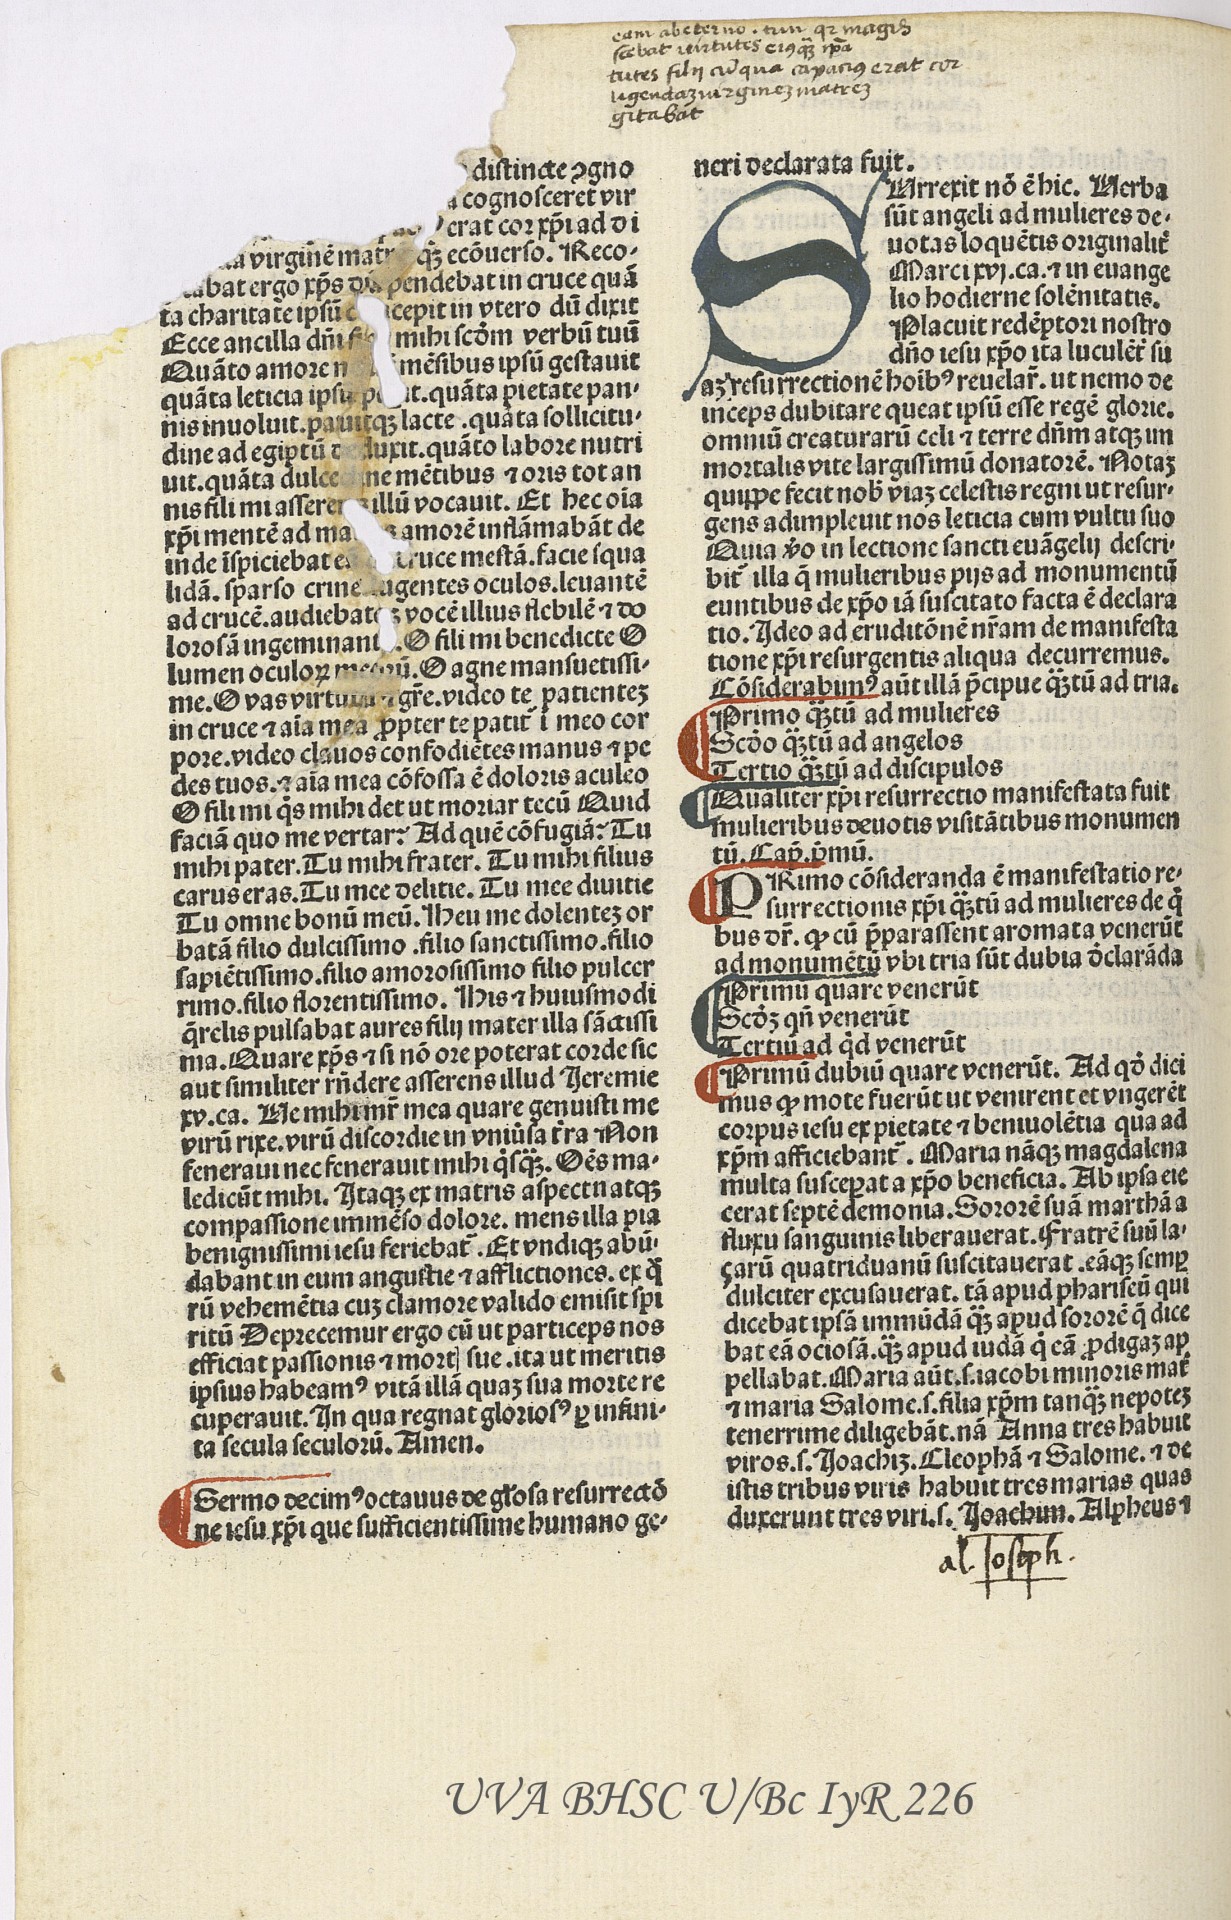 eam abeterno . tum qr magis
scebat virtutes eiꝰqꝫ ip̄a
tutes filij cū qua capaciꝰ erat cor
ugendaꝫ virgineꝫ matreꝫ
gitabāt
distincte ⁊gno
cognosceret vir
erat cor xp̄i ad di
virginē matr qꝫ ecōuerso. Reco-
tabat ergo xp̄s dū pendebat in cruce quā
ta charitate ipsū cōcepit in vtero dū dixit
Ecce ancilla dn̄i fi mihi scḋm verbū tuū
Quāto amore n mēsibus ipsū gestauit
quāta leticia ipsū p it. quāta pietate pan-
nis inuoluit. pauitqꝫ lacte . quāta sollicitu-
dine ad egiptū deduxit. quāto labore nutri
uit. quāta dulcedine mētibus ⁊ oris tot an
nis fili mi asserens illū vocauit. Et hec oīa
xp̄i mentē ad ma amorē inflāmabāt de
inde īspiciebat eā cruce mestā. facie squa
lidā. sparso crine lugentes oculos. leuantē
ad crucē. audiebatqꝫ vocē illius flebilē ⁊ do
lorosā ingeminantis. O fili mi benedicte O
lumen oculoꝝ meoꝝū. O agne mansuetissi-
me. O vas virtutū ⁊ gr̄e. video te patienteꝫ
in cruce ⁊ aīa mea ꝓpter te patit̄ ī meo cor
pore. video clauos confodiētes manus ⁊ pe
des tuos. ⁊ aīa mea cōfossa ē doloris aculeo
O fili mi q̇s mihi det ut moriar tecū Quid
faciā quo me vertar? Ad quē cōfugiā? Tu
mihi pater. Tu mihi frater. Tu mihi filius
carus eras. Tu mee delitie. Tu mee diuitie
Tu omne bonū meū. Heu me dolenteꝫ or
batā filio dulcissimo . filio sanctissimo. filio
sapiētissimo. filio amorosissimo filio pulcer
rimo. filio florentissimo. His ⁊ huiusmodi
q̄relis pulsabat aures filij mater illa sāctissi
ma. Quare xp̄s ⁊ si nō ore poterat corde sic
aut similiter rn̄dere asserens illud Jeremie
xv. ca. Ve mihi mr̄ mea quare genuisti me
virū rixe. virū discordie in vniu̇sa t̄ra Non
feneraui nec fenerauit mihi q̇sqꝫ. Oēs ma-
ledicūt mihi. Itaqꝫ ex matris aspectu atqꝫ
compassione immēso dolore. mens illa pia
benignissimi iesu feriebat̄ . Et vndiqꝫ abū-
dabant in eum angustie ⁊ afflictiones. ex q̄
rū vehemētia cuꝫ clamore valido emisit spi
ritū Deprecemur ergo eū ut particeps nos
efficiat passionis ⁊ mortꝭ sue . ita ut meritis
ipsius habeamꝰ vitā illā quaꝫ sua morte re
cuperauit. In qua regnat gloriosꝰ ꝑ infini-
ta secula seculorū. Amen.
Sermo decimꝰoctauus de gl̄osa resurrectō
ne iesu xp̄i que sufficientissime humano ge-
neri declarata fuit.
SUrrexit nō ē hic. Verba
sūt angeli ad mulieres de-
uotas loquētis originalit̄
Marci xvj. ca. ⁊ in euange
lio hodierne solēnitatis.
Placuit redēptori nostro
dn̄o iesu xp̄o ita luculēt̄ su
aꝫ resurrectionē hoībꝰ reuelar̄. ut nemo de
inceps dubitare queat ipsū esse regē glorie.
omniū creaturarū celi ⁊ terre dn̄m atqꝫ im
mortalis vite largissimū donatorē. Notaꝫ
quippe fecit nob̄ viaꝫ celestis regni ut resur-
gens adimpleuit nos leticia cum vultu suo
Quia v̊o in lectione sancti euāgelij descri-
bit̄ illa q̄ mulieribus pijs ad monumentū
euntibus de xp̄o iā suscitato facta ē declara
tio. Ideo ad eruditōnē nr̄am de manifesta
tione xp̄i resurgentis aliqua decurremus.
Cōsiderabimꝰ aūt illā p̄cipue qꝫtū ad tria.
Primo qꝫtū ad mulieres
Scḋo qꝫtū ad angelos
Tertio qꝫtū ad discipulos
Qualiter xp̄i resurrectio manifestata fuit
mulieribus deuotis visitātibus monumen
tū. Cap̄. p̄mū.
PRimo cōsideranda ē manifestatio re-
surrectionis xp̄i qꝫtū ad mulieres de q̇
bus dr̄. ꝙ cū p̄parassent aromata venerūt
ad monumētū vbi tria sūt dubia d̄clarāda
Primū quare venerūt
Scḋꝫ qn̄ venerūt
Tertiū ad q̇d venerūt
Primū dubiū quare venerūt. Ad qḋ dici
mus ꝙ mote fuerūt ut venirent et vngerēt
corpus iesu ex pietate ⁊ beniuolētia qua ad
xp̄m afficiebant̄ . Maria nāqꝫ magdalena
multa susceperat a xp̄o beneficia. Ab ipsa eie
cerat septē demonia. Sororē suā marthā a
fluxu sanguinis liberauerat. Fratrē suū la-
çarū quatriduanū suscitauerat . eāqꝫ semꝑ
dulciter excusauerat. tā apud phariseū qui
dicebat ipsā immūdā qꝫ apud sororē q̄ dice
bat eā ociosā. qꝫ apud iudā q̇ eā ꝓdigaꝫ ap
pellabat. Maria aūt. s. iacobi minoris mat̄
⁊ maria Salome. s. filia xp̄m tanqꝫ nepoteꝫ
tenerrime diligebāt. nā Anna tres habuit
viros. s. Joachiꝫ. Cleophā ⁊ Salome. ⁊ de
istis tribus viris habuit tres marias quas
duxerunt tres viri. s. Joachim. Alpheus ⁊
al. Joseph.
UVA BHSC U/Bc IyR 226